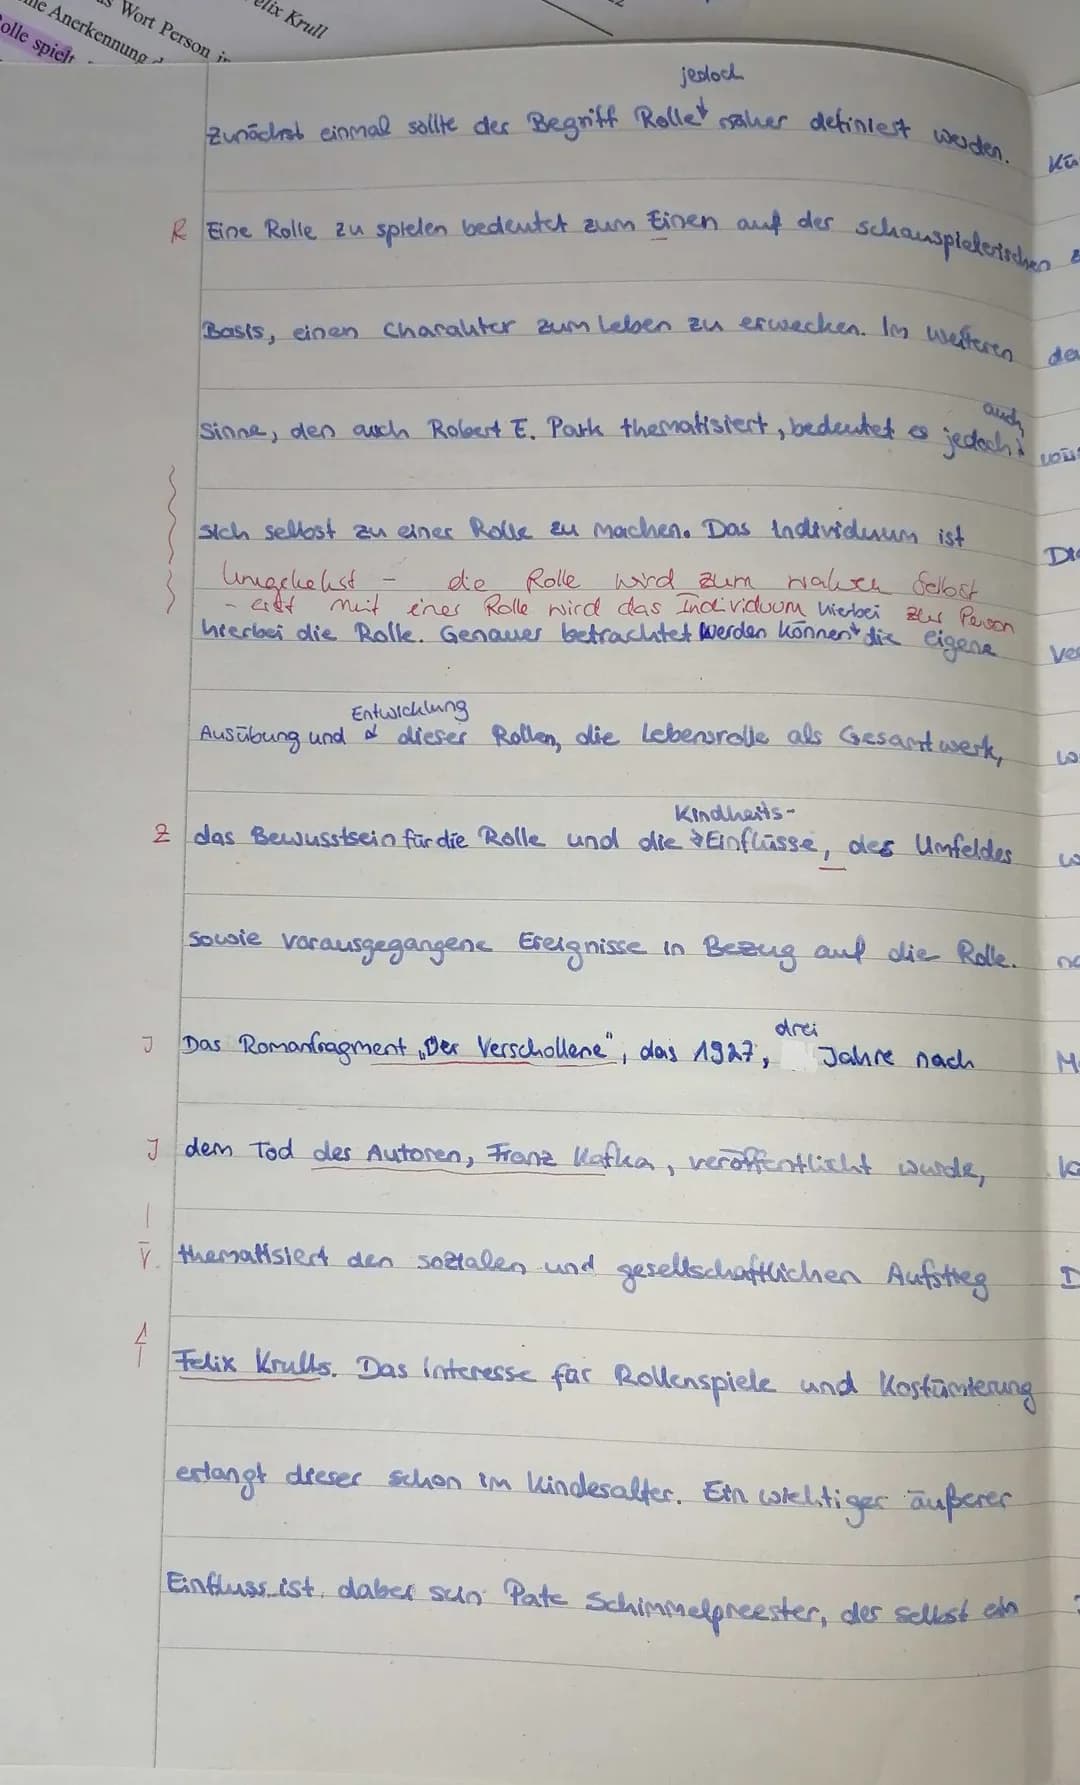 Anerkennung
Wort Person
Rolle spielt
Felix Krull
jedoch
Zunächst einmal sollte der Begriff Rolle näher definiert werden.
R Eine Rolle zu spielen bedeutet zum Einen auf der schauspielerischen
Basis, einen Charakter zum Leben zu erwecken. Im weiteren
auch
Sinne, den auch Robert E. Park thematisiert, bedeutet es jedoch
sich selbst zu einer Rolle zu machen. Das Individuum ist
Umgekehrt - die Rolle wird zum wahren Selbst
- erst mit einer Rolle wird das Individuum hierbei zur Person
hierbei die Rolle. Genauer betrachtet werden können die eigene
Entwicklung
Ausübung und dieser Rollen, die Lebensrolle als Gesamtwerk,
Kindheits-
Z das Bewusstsein für die Rolle und die Einflüsse, des Umfeldes
sowie vorausgegangene Ereignisse in Bezug auf die Rolle.
drei
J Das Romanfragment „Der Verschollene", das 1927, Jahre nach
J dem Tod des Autoren, Franz Kafka, veröffentlicht wurde,
thematisiert den sozialen und gesellschaftlichen Aufstieg
Felix Krulls. Das Interesse für Rollenspiele und Kostümierung
erlangt dieser schon im Kindesalter. Ein wichtiger äußerer
Einfluss ist dabei sein Pate Schimmelpreester, der selbst ein